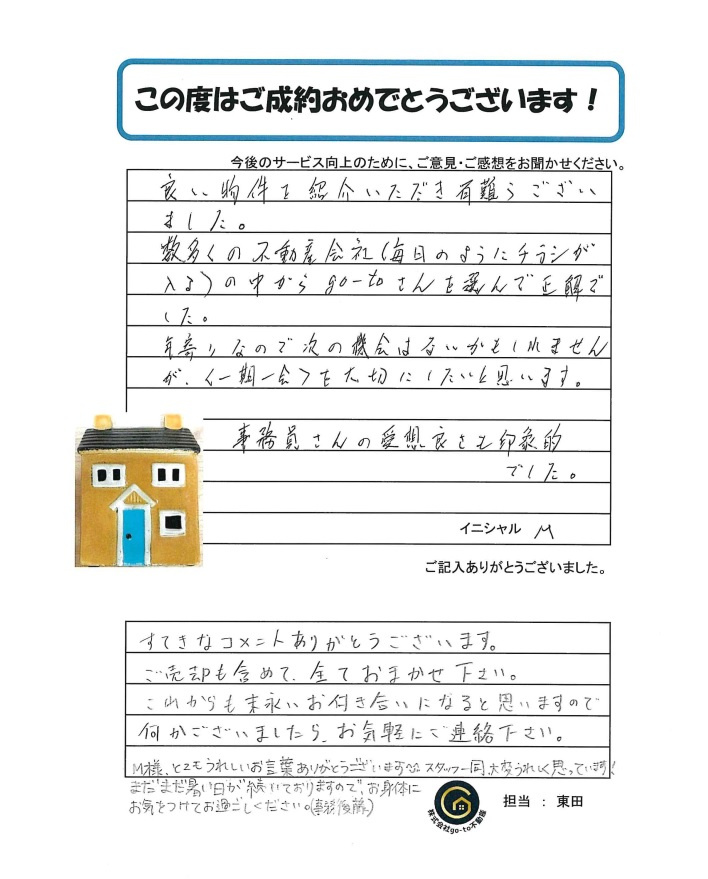 この度はご成約おめでとうございます！
今後のサービス向上のために、ご意見・ご感想をお聞かせください。
良い物件を紹介いただき有難うござい
ました。
数多くの不動産会社(毎日のようにチラシが
入る)の中からgo-toさんを選んで正解で
した。
年寄りなので次の機会はないかもしれません
が、<一期一会>を大切にしたいと思います。
事務員さんの愛想良さも印象的
でした。
イニシャル M
ご記入ありがとうございました。
すてきなコメントありがとうございます。
ご売却も含めて、全ておまかせ下さい。
これからも末永いお付き合いになると思いますので
何かございましたら、お気軽にご連絡下さい。
M様、とてもうれしいお言葉ありがとうございます スタッフ一同、大変うれしく思っています!
まだまだ暑い日が続いておりますので、お身体に
お気をつけてお過ごしください。(事務後藤)
株式会社go-to不動産
担当 : 東田